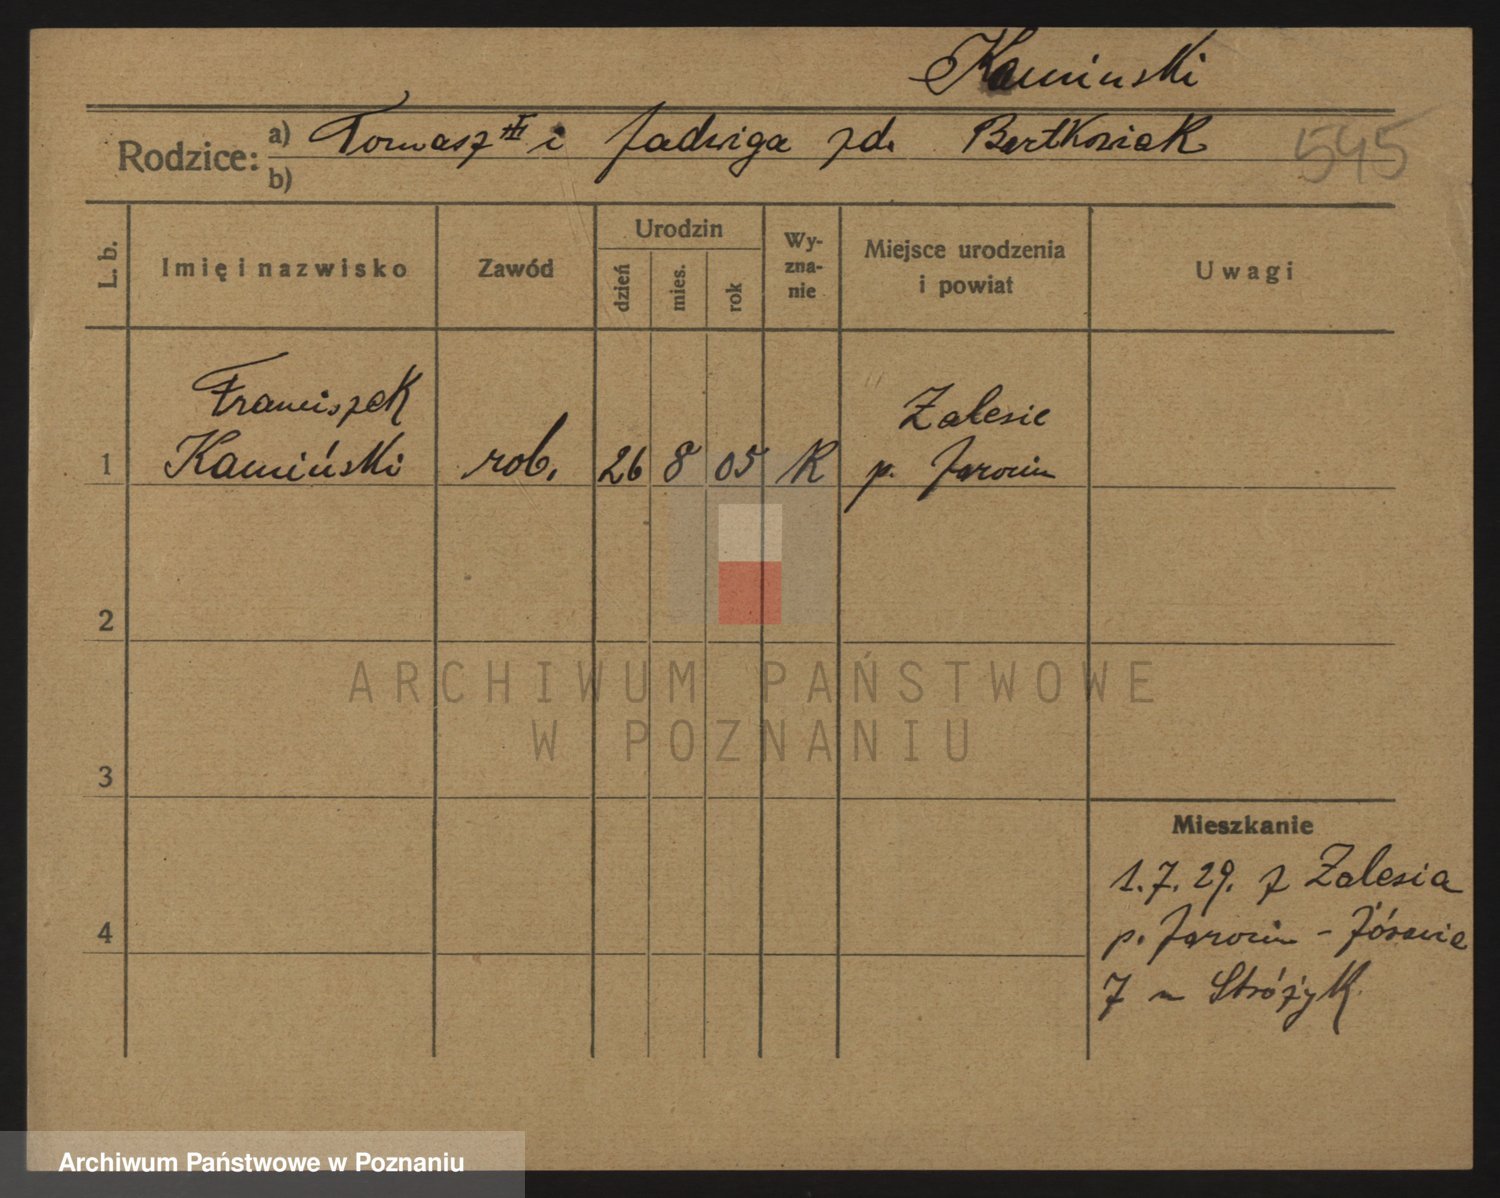 Kaminski
Rodzice: a) Tomasz i Jadwiga zd. Bartkowiak
545
b)
L. b.
Imię i nazwisko
Zawód
Urodzin
dzień
mies.
rok
Wy-
zna-
nie
Miejsce urodzenia
i powiat
Uwagi
Franciszek
Zalesie
1 Kamiński rob. 26 8 05 K p. Jarocin
2
3
4
Mieszkanie
1.7.29. z Zalesia
p. Jarocin -
7 Stróżyk
ARCHIWUM PAŃSTWOWE
W POZNANIU
Archiwum Państwowe w Poznaniu